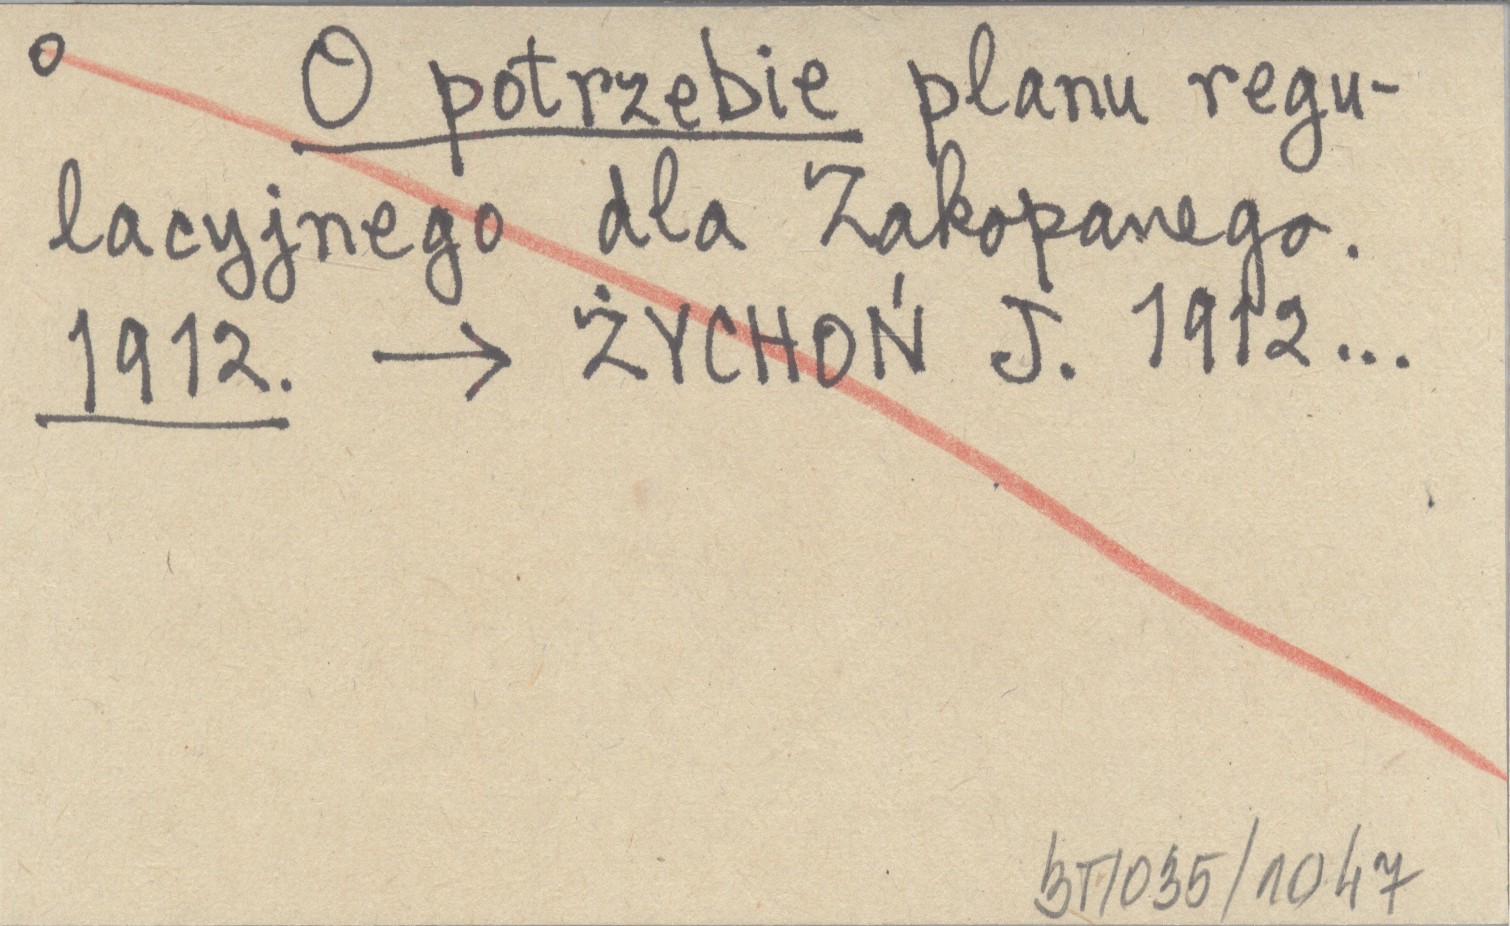 O potrzebie planu regu-
lacyjnego dla Zakopanego.
1912. → ŻYCHOŃ J. 1912...
BT/035/1047